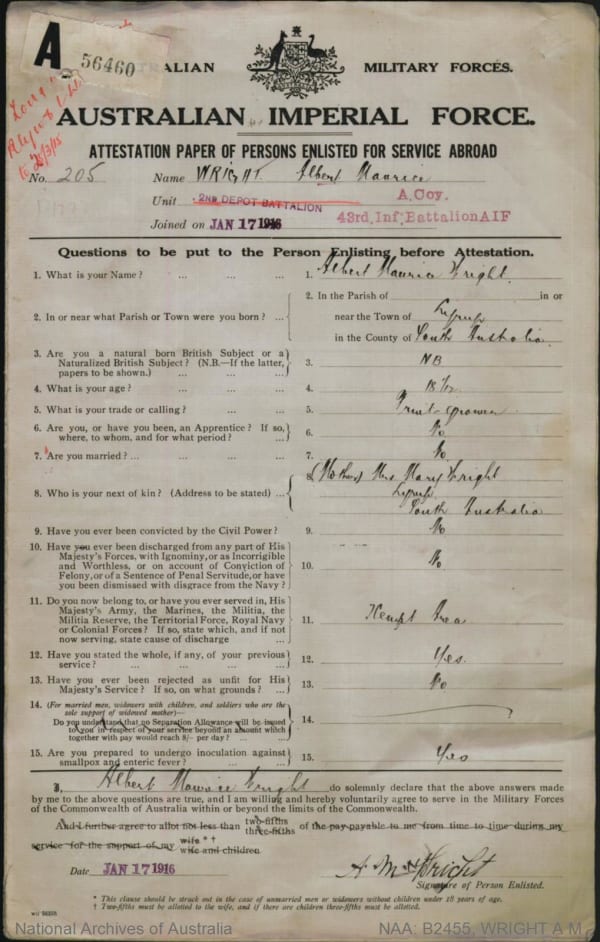 A 56460
AUSTRALIAN MILITARY FORCES.
AUSTRALIAN IMPERIAL FORCE.
ATTESTATION PAPER OF PERSONS ENLISTED FOR SERVICE ABROAD
No. 205 Name WRIGHT Albert Maurice
Unit 2ND DEPOT BATTALION A. Coy.
43rd. Inf. Battalion AIF
Joined on JAN 17 1916
Questions to be put to the Person Enlisting before Attestation.
1. What is your Name? ... ... ... 1. Albert Maurice Wright
2. In or near what Parish or Town were you born? ... 2. In the Parish of in or
near the Town of Lyrup
in the County of South Australia
3. Are you a natural born British Subject or a
Naturalized British Subject? (N.B.—If the latter,
papers to be shown.) ... ... ... 3. NB
4. What is your age? ... ... ... 4. 18
5. What is your trade or calling? ... ... 5. Fruit-grower
6. Are you, or have you been, an Apprentice? If so,
where, to whom, and for what period? ... 6. No
7. Are you married? ... ... ... ... 7. No
8. Who is your next of kin? (Address to be stated) ... 8. (Mother) Mrs Mary Wright
Lyrup
South Australia
9. Have you ever been convicted by the Civil Power? 9. No
10. Have you ever been discharged from any part of His
Majesty's Forces, with Ignominy, or as Incorrigible
and Worthless, or on account of Conviction of
Felony, or of a Sentence of Penal Servitude, or have
you been dismissed with disgrace from the Navy? 10. No
11. Do you now belong to, or have you ever served in, His
Majesty's Army, the Marines, the Militia, the
Militia Reserve, the Territorial Force, Royal Navy
or Colonial Forces? If so, state which, and if not
now serving, state cause of discharge ... 11. Exempt Area
12. Have you stated the whole, if any, of your previous
service? ... ... ... ... 12. Yes.
13. Have you ever been rejected as unfit for His
Majesty's Service? If so, on what grounds? ... 13. No
14. (For married men, widowers with children, and soldiers who are the
sole support of widowed mother)—
Do you understand that no Separation Allowance will be issued
to you in respect of your service beyond an amount which
together with pay would reach 8/- per day? ... ... 14.
15. Are you prepared to undergo inoculation against
smallpox and enteric fever? ... ... 15. Yes
I, Albert Maurice Wright do solemnly declare that the above answers made
by me to the above questions are true, and I am willing and hereby voluntarily agree to serve in the Military Forces
of the Commonwealth of Australia within or beyond the limits of the Commonwealth.
And I further agree to allot not less than two-fifths three-fifths of the pay payable to me from time to time during my
service for the support of my wife * † wife and children
Date JAN 17 1916 A M Wright
Signature of Person Enlisted.
* This clause should be struck out in the case of unmarried men or widowers without children under 18 years of age.
† Two-fifths must be allotted to the wife, and if there are children three-fifths must be allotted.
National Archives of Australia NAA: B2455, WRIGHT A M